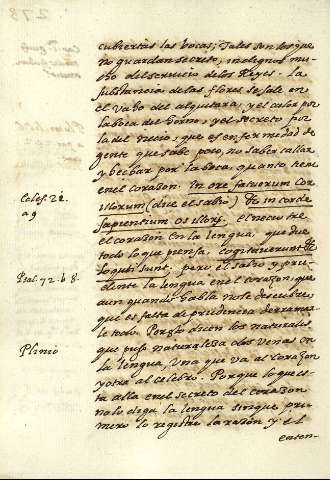 cubiertas las bocas; Tales son los que
no guardan secreto, indignos mu-
cho del servicio de los Reyes. La
substancia de las flores se sale en
el vaho del alquitara, y el calor por
la boca del horno, y el secreto por
la del necio, que es enfermedad de
gente que sabe poco, no saber callar
y hechar por la boca, quanto tiene
en el corazon. In ore fatuorum Cor
illorum (dice el sabio) & in corde
Sapientium os illorũ. el necio tre
el corazon en la lengua, que dice
todo lo que piensa, cogitaverunt &
loquuti sunt, pero el sabio y pru-
dente la lengua en el corazon, que
aun quando habla no se descubre,
que es falta de prudencia derramar-
le todo. Por esso dicen los naturales
que puso naturaleza dos venas en
la lengua, Una que va al corazon
y otra al celebro. Porque lo que es-
ta alla en el secreto del corazon
no lo diga la lengua sin que pri-
mero lo registre la razon y el
enten-
Eccles. 21.
a 9
Psal. 72. b 8.
Plinio